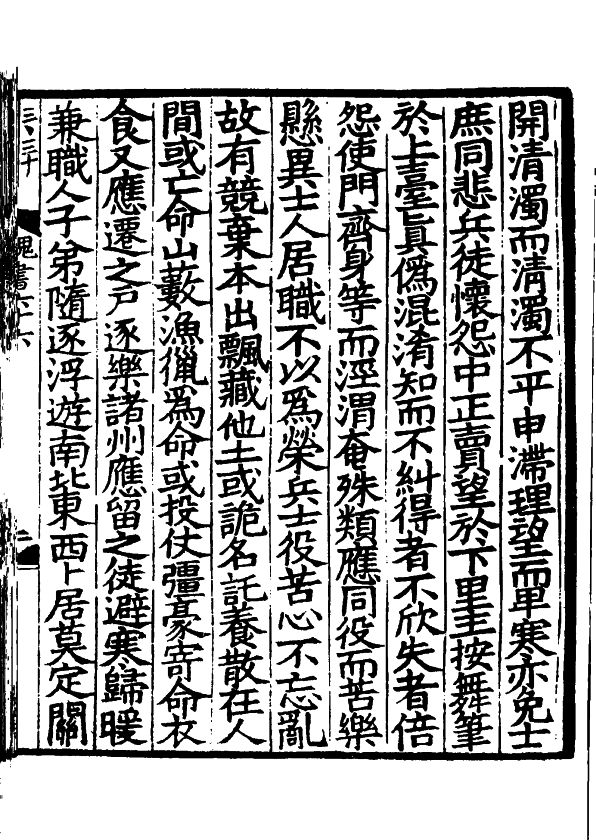 開清濁而清濁不平申滯理望而卑寒亦免士
庶同悲兵徒懷怨中正賣望於下里主按舞筆
於上臺真僞混淆知而不糾得者不欣失者倍
怨使門齊身等而涇渭奄殊類應同役而苦樂
懸異士人居職不以爲榮兵士役苦心不忘亂
故有競棄本出飄藏他土或詭名託養散在人
間或亡命山藪漁獵爲命或投仗彊豪寄命衣
食又應遷之戶逐樂諸州應留之徒避寒歸暖
兼職人子弟隨逐浮遊南北東西卜居莫定關
魏書六十六